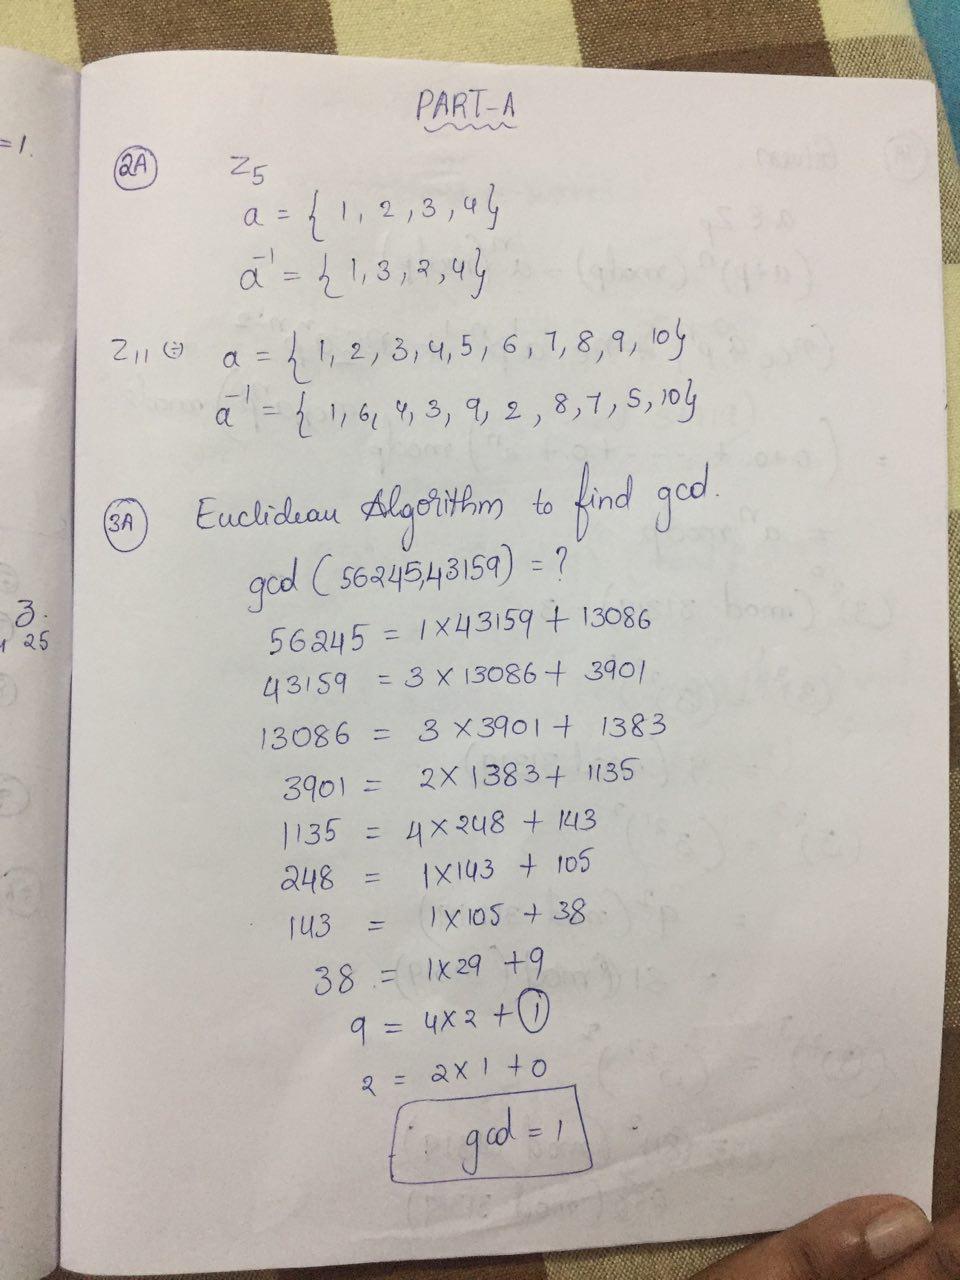 =1.
PART-A
2A Z5
a = { 1, 2, 3, 4}
a⁻¹ = { 1, 3, 2, 4}
Z11 a = { 1, 2, 3, 4, 5, 6, 7, 8, 9, 10}
a⁻¹ = { 1, 6, 4, 3, 9, 2, 8, 7, 5, 10}
3A Euclidean Algorithm to find gcd.
gcd (56245,43159) = ?
56245 = 1×43159 + 13086
43159 = 3 × 13086 + 3901
3.
25
13086 = 3 × 3901 + 1383
3901 = 2×1383 + 1135
1135 = 4×248 + 143
248 = 1×143 + 105
143 = 1×105 + 38
38 = 1×29 +9
9 = 4×2 + 1
2 = 2×1 +0
gcd = 1